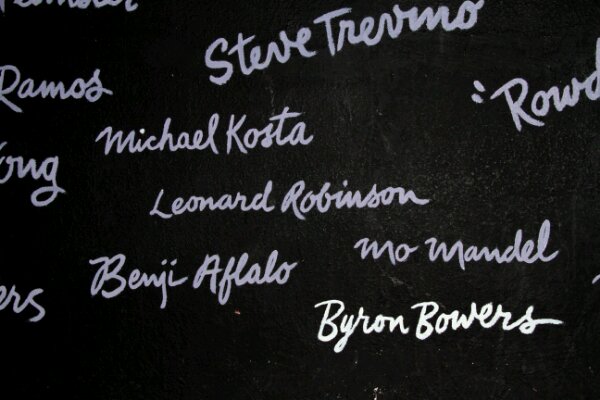 Steve Trevino
Ramos
Michael Kosta
Leonard Robinson
Mo Mandel
Benji Aflalo
Byron Bowers